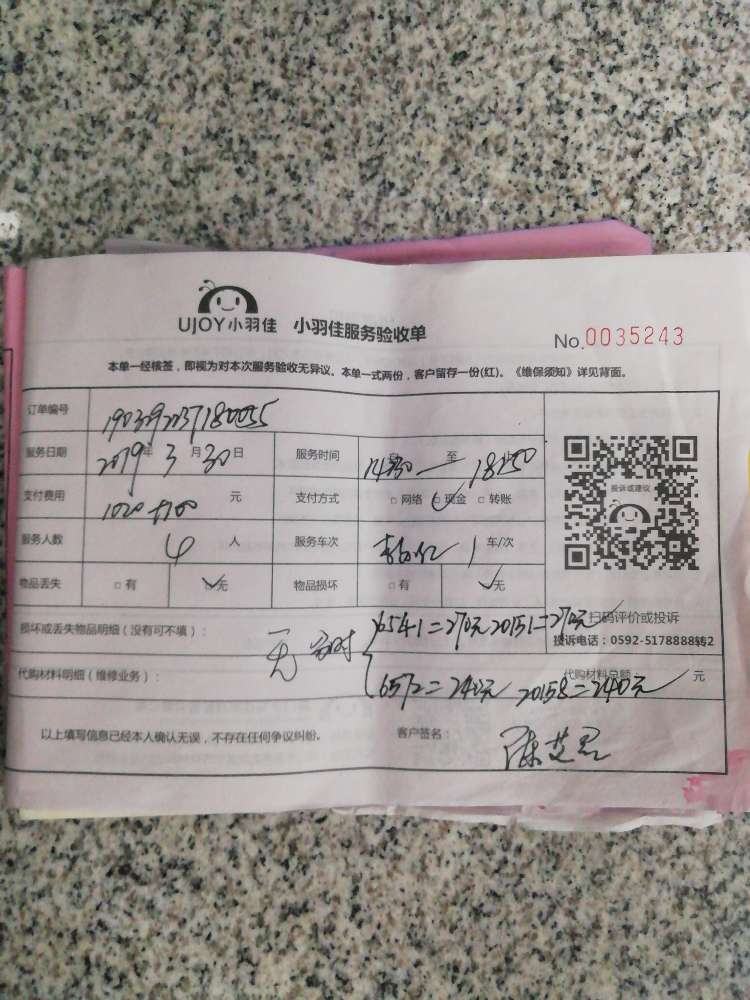 UJOY小羽佳 小羽佳服务验收单
No.0035243
本单一经核签，即视为对本次服务验收无异议。本单一式两份，客户留存一份(红)。《维保须知》详见背面。
订单编号
服务日期 2019年 3月 30日 服务时间 至 18:50
支付费用 1020+100 元 支付方式 □网络 □现金 □转账
服务人数 4 人 服务车次 1 车/次
物品丢失 □有 □无 物品损坏 □有 无
投诉或建议
扫码评价或投诉
投诉电话：0592-5178888转2
损坏或丢失物品明细（没有可不填）： 无 16541=270元 20151=270元
代购材料明细（维修业务）： 16572=240元 20158=240元 代购材料总额： 元
以上填写信息已经本人确认无误，不存在任何争议纠纷。 客户签名：